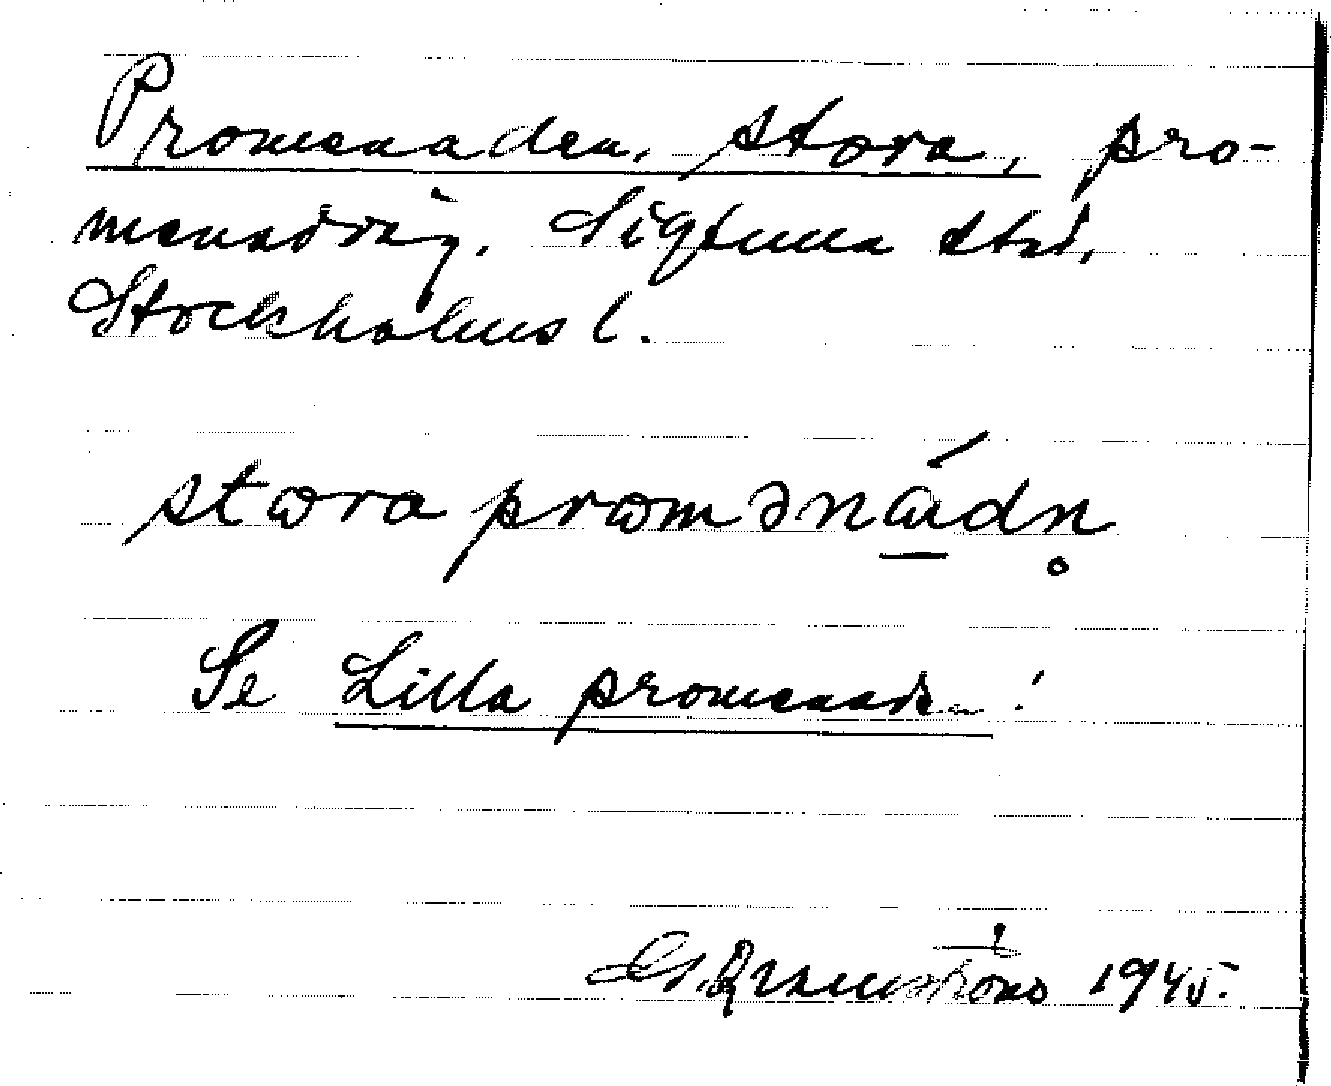 Promenaden, stora, pro-
menadväg. Sigtuna stad,
Stockholms l.
stωra prωmənɑ́dn̥
Se Lilla promenaden!
G. Brannström 1945.